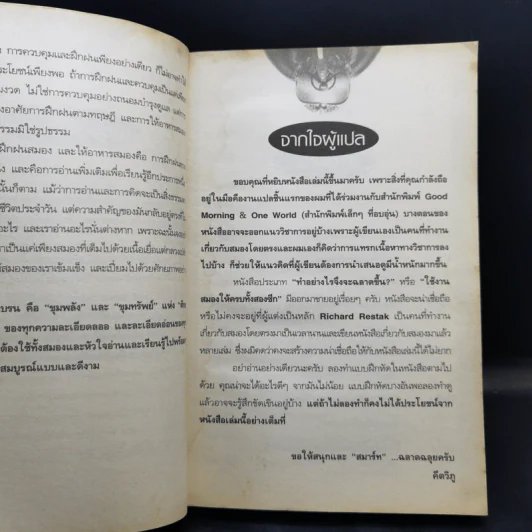 การควบคุมและฝึกฝนเพียงอย่างเดียว
ประโยชน์เพียงพอ ถ้าการฝึกฝนและควบคุมเป็นแต่เพียง
งวด ไม่ใช่การควบคุมอย่างถนอมบำรุงดูแล
อาศัยการฝึกฝนตามทฤษฎี และการให้อาหารสมอง
ธรรมมิใช่รูปธรรม
ฝึกฝนสมอง และให้อาหารสมองคือ การฝึกฝน
และคือการอ่านเพิ่มเติมเพื่อเรียนรู้อีกประการหนึ่ง
นั้นก็ตาม แม้ว่าการอ่านและการคิดจะเป็นสิ่งธรรม
ชีวิตประจำวัน แต่ความสำคัญของมันกลับอยู่ตรงที่
อะไร และเราอ่านอะไรนั้นต่างหาก เพราะฉะนั้น
เป็นแค่เพียงสมองที่เต็มไปด้วยเนื้อเยื่อแต่กลวง
สมองของเราเข้มแข็ง และเปี่ยมไปด้วยศักยภาพ
คือ "ขุมพลัง" และ "ขุมทรัพย์" แห่ง
ของทุกความละเอียดลออ และละเอียดอ่อน
ต้องใช้ทั้งสมองและหัวใจอ่านและเรียนรู้ไปพร้อม
สมบูรณ์แบบและดีงาม
จากใจผู้แปล
ขอบคุณที่หยิบหนังสือเล่มนี้ขึ้นมาครับ เพราะสิ่งที่คุณกำลังถือ
อยู่ในมือคืองานแปลชิ้นแรกของผมที่ได้ร่วมงานกับสำนักพิมพ์ Good
Morning & One World (สำนักพิมพ์เล็กๆ ที่อบอุ่น) บางตอนของ
หนังสืออาจจะออกแนววิชาการอยู่บ้างเพราะผู้เขียนเองเป็นคนที่ทำงาน
เกี่ยวกับสมองโดยตรงและผมเองก็คิดว่าการแทรกเนื้อหาทางวิชาการลง
ไปบ้าง ก็ช่วยให้แนวคิดที่ผู้เขียนต้องการนำเสนอดูมีน้ำหนักมากขึ้น
หนังสือประเภท "ทำอย่างไรจึงจะฉลาดขึ้น?" หรือ "ใช้งาน
สมองให้ครบทั้งสองซีก" มีออกมาขายอยู่เรื่อยๆ ครับ หนังสือจะน่าเชื่อถือ
หรือไม่คงจะอยู่ที่ผู้แต่งเป็นหลัก Richard Restak เป็นคนที่ทำงาน
เกี่ยวกับสมองโดยตรงมาเป็นเวลานานและเขียนหนังสือเกี่ยวกับสมองมาแล้ว
หลายเล่ม ซึ่งผมคิดว่าคงจะสร้างความน่าเชื่อถือให้กับหนังสือเล่มนี้ได้ไม่ยาก
อย่าอ่านอย่างเดียวนะครับ ลองทำแบบฝึกหัดในหนังสือตามไป
ด้วย คุณน่าจะได้อะไรดีๆ จากมันไม่น้อย แบบฝึกหัดบางอันพอลองทำดู
แล้วอาจจะรู้สึกขัดเขินอยู่บ้าง แต่ถ้าไม่ลองทำก็คงไม่ได้ประโยชน์จาก
หนังสือเล่มนี้อย่างเต็มที่
ขอให้สนุกและ "สมาร์ท" ...ฉลาดฉลุยครับ
คีตวิภู